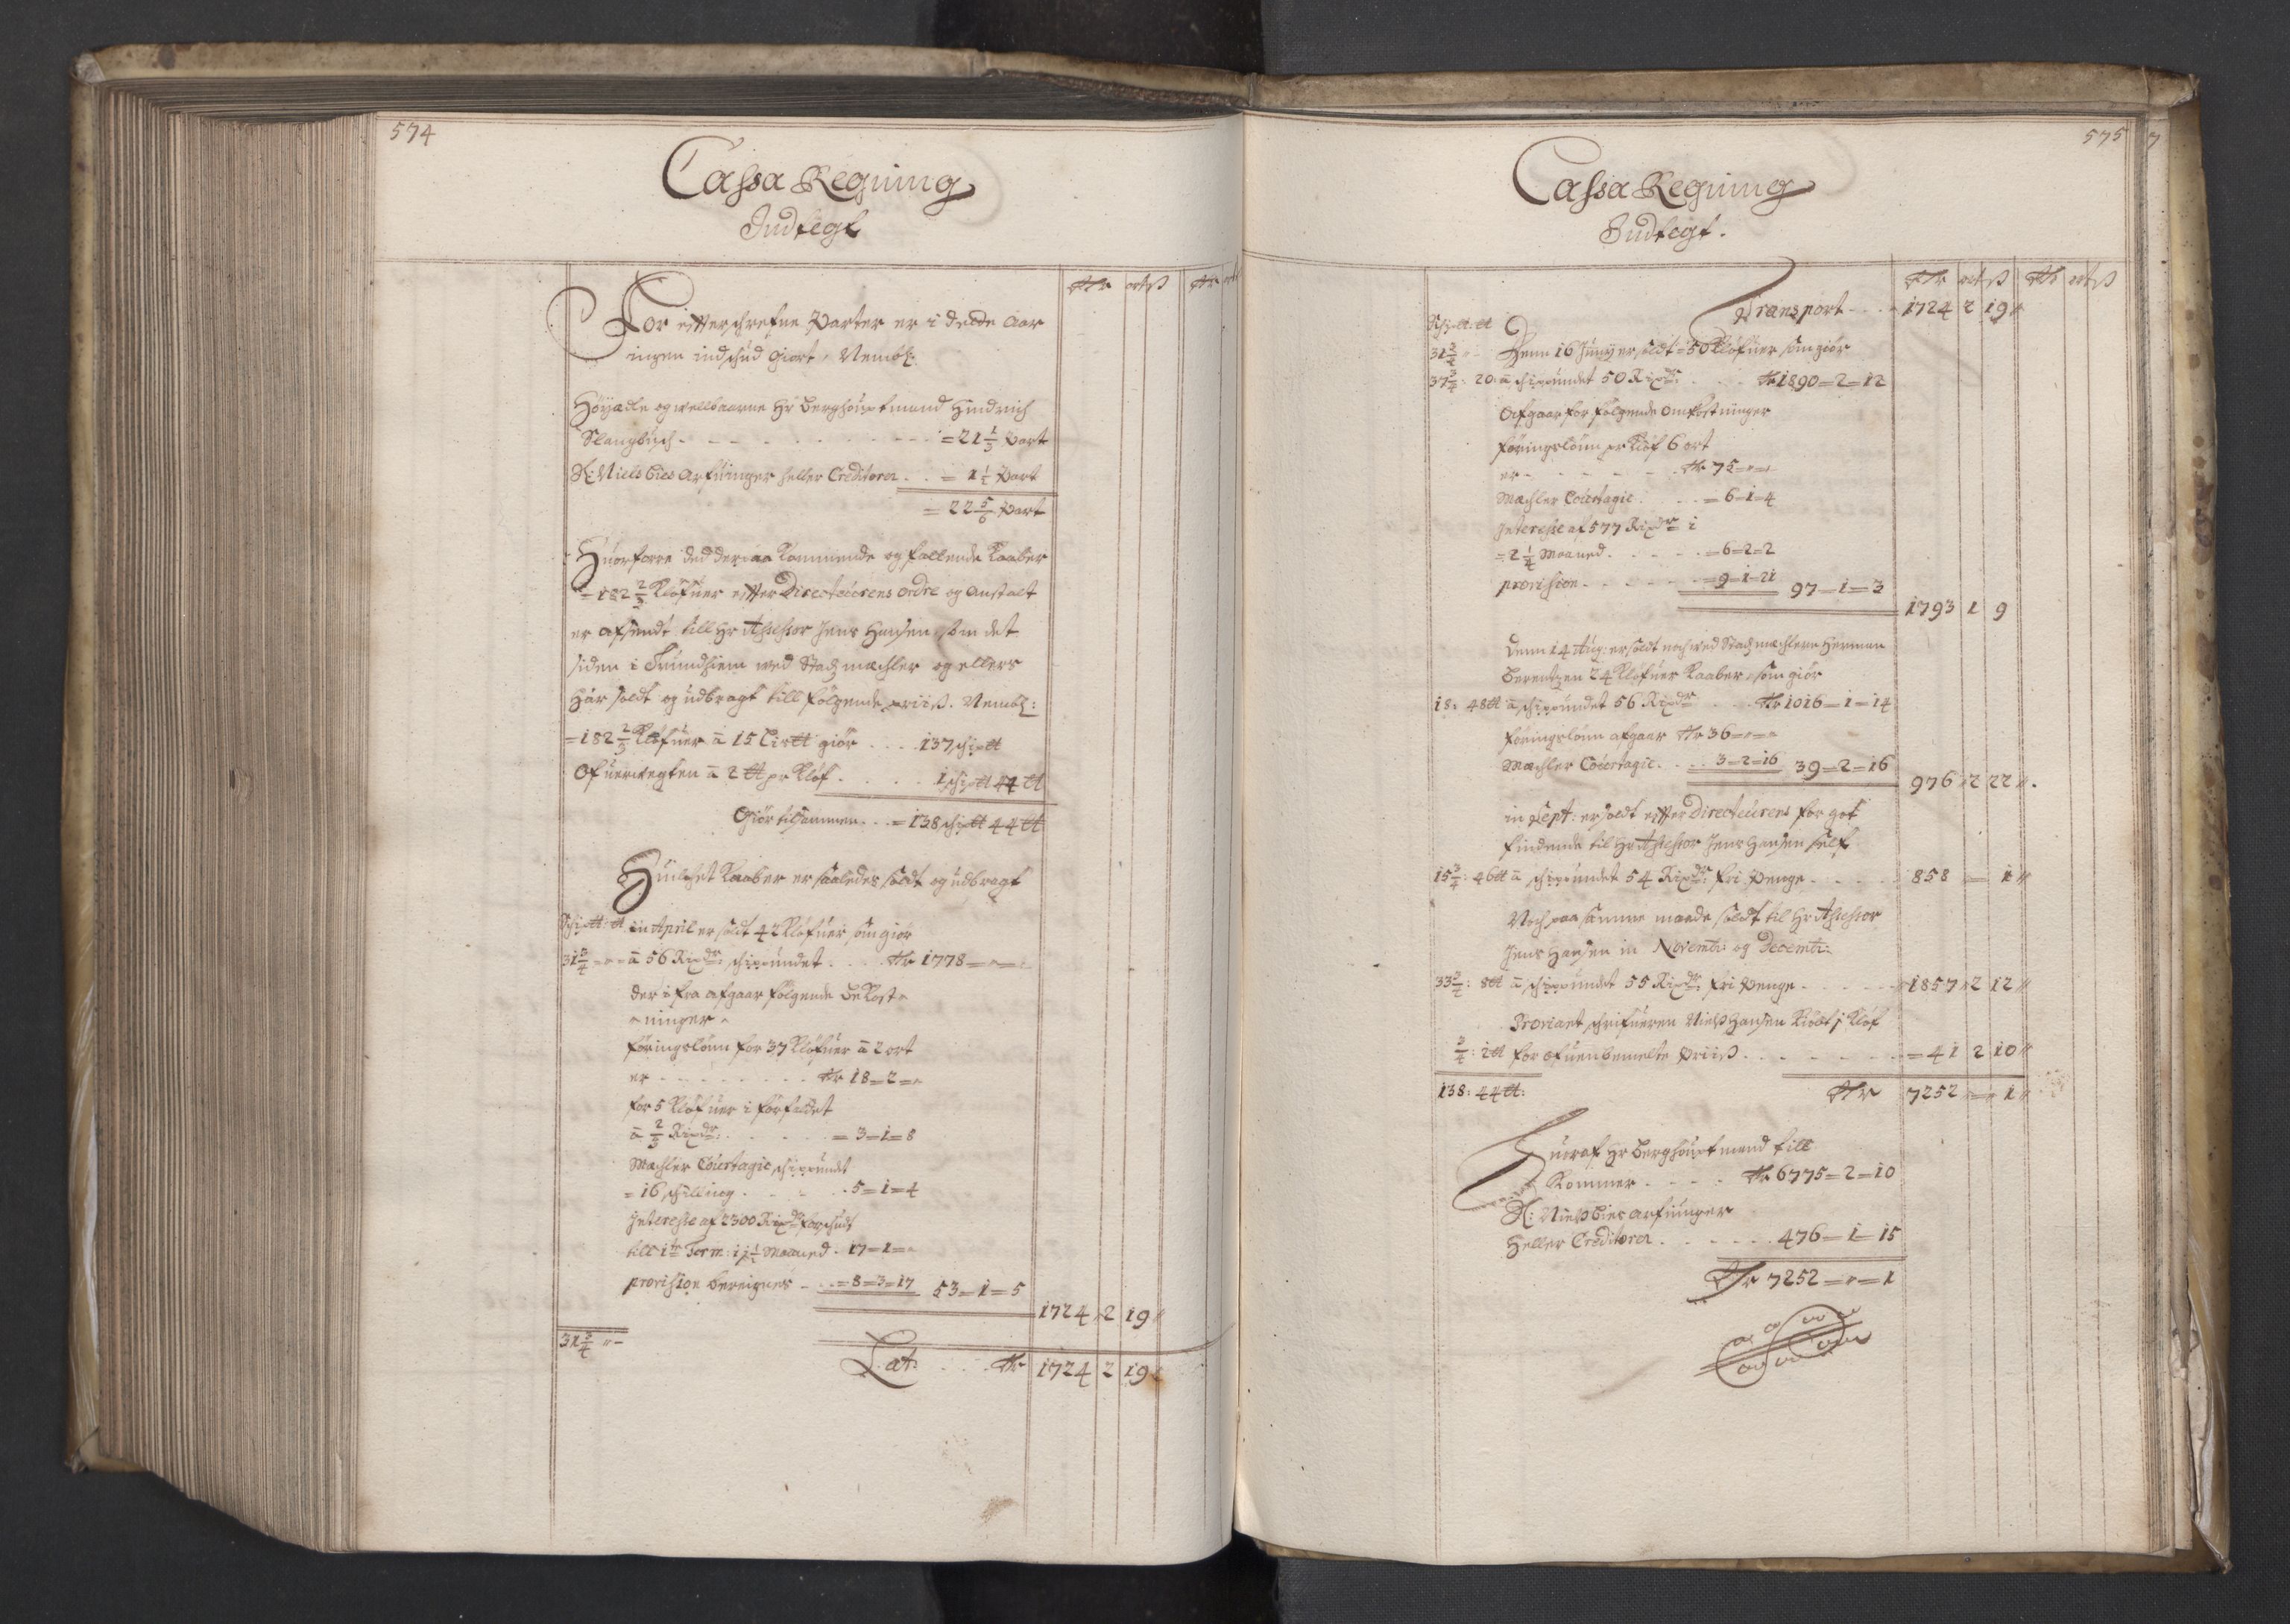 574
Cassa Regning
Indtegt
Rdr ort ß Rdr ort
For effterschrefne Parter er i dette Aar
ingen indschud giort, Nembl:
Höyædle og wellbaarne Hr Berghouptmand Hindrich
Slangbusch - - - = 21 1/3 Part
Sl: Niels Bies Arfuinger heller Creditorer . . = 1 1/2 Part
= 22 5/6 Part
Huorforre ded der paa Kommende og fallende Kaaber
= 182 2/3 Klöfuer effter Directeurens ordre og Anstalt
er afsendt till Hr Assessor Jens Hansen, som det
siden i Trundhiem wed Stadz mæchler og ellers
har soldt og udbragt till fölgende priiß. Nembl:
= 182 2/3 Klöfuer à 15 Lis℔ giör . . . . 137 schip℔
Ofuerwegten à 2 ℔ pr Klöf . . . . . 1 schip℔ 44 ℔
Giör tilsammen . . . = 138 schip℔ 44 ℔
Huilchet Kaaber er saaledes soldt og udbragt
Schip℔: ℔ in April er soldt 42 Klöfuer som giör
31 3/4 - " - à 56 Rixdr: schippundet . . . . Rdr 1778 = " = "
der i fra afgaar fölgende bekost-
-ninger-
föringslönn for 37 Klöfuer à 2 ort
er - - - - - - - - Rdr 18 = 2 = "
for 5 Klöfuer i förfaldet
à 2/3 Rixdr: . . . . . = 3 = 1 = 8
Mæchler Courtagie schippundt
= 16 schilling . . . . . 5 = 1 = 4
Interesse af 2300 Rixdr forschudt
till 1te Term: i 1 1/2 Maaned . 17 = 1 = "
provision beregnes - . . = 8 = 3 = 17 53 = 1 = 5
1724 2 19 "
31 3/4 " -
Lat: . . . Rdr 1724 2 19
575
7
Cassa Regning
Indtegt.
Rdr ort ß Rdr ort ß
Transport - - - 1724 2 19 "
Schip℔: ℔
31 3/4 " - Denn 16 Junij er soldt = 50 Klöfuer som giör
37 3/4: 20 à schippundet 50 Rixdr: . . . Rdr 1890 = 2 = 12
Afgaar for fölgende omkostninger
föringslönn pr Klöf 6 ort
er - - - - - - - Rdr 75 = " = "
Mæchler Courtagie . . . . = 6 = 1 = 4
Interesse af 577 Rixdr i
= 2 1/4 Maaned . . . . . = 6 = 2 = 2
provision - . . . . . = 9 = 1 = 21 97 = 1 = 3
1793 1 9
Denn 14 Aug: er soldt noch wed Stadz mæchleren Herman
Berentzen 24 Klöfuer Kaaber, som giör
18: 48℔ à schippundet 56 Rixdr . . . Rdr 1016 = 1 = 14
föringslönn afgaar Rdr 36 = " = "
Mæchler Courtagie . . . . 3 = 2 = 16 39 = 2 = 16
976 2 22 " .
in Sept: er soldt effter Directeurens for got
findende til Hr Assessor Jens Hansen self
15 3/4: 46℔ à schippundet 54 Rixdr: fri Penge - . . . - 858 — 1 "
Noch paa samme maade soldt til Hr Assessor
Jens Hansen in Novembr: og Decembr:
33 3/4: 8℔ à schippundet 55 Rixdr: fri Penge - . . . . - 1857 2 12 "
Proviant schrifueren Nielß Hansen Kiöbt j Klöf
3/4: 2℔ for ofuenbemelte Priiß . . . . . . . = 41 2 10 "
138: 44℔: Rdr 7252 — 1 "
Huoraf Hr Berghouptmand till
Kommer - . . . - Rdr 6775 = 2 = 10
Sl: Nielß Bies arfuinger
Heller Creditorer . . . . . . 476 = 1 = 15
Rdr 7252 = " = 1